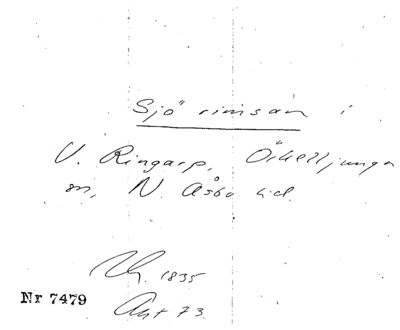 Sjö rimsan i
V. Ringarp, Örkelljunga
sn, N. Åsbo hd.
1835
Nr 7479
Ant 73